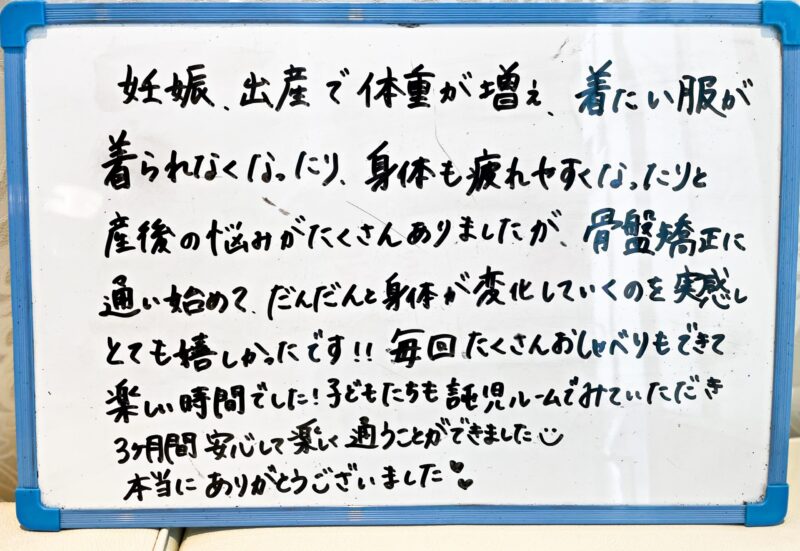 妊娠、出産で体重が増え、着たい服が
着られなくなったり、身体も疲れやすくなったりと
産後の悩みがたくさんありましたが、骨盤矯正に
通い始めて、だんだんと身体が変化していくのを実感し
とても嬉しかったです!! 毎回たくさんおしゃべりもできて
楽しい時間でした!子どもたちも託児ルームでみていただき
3ヶ月間安心して楽しく通うことができました
本当にありがとうございました